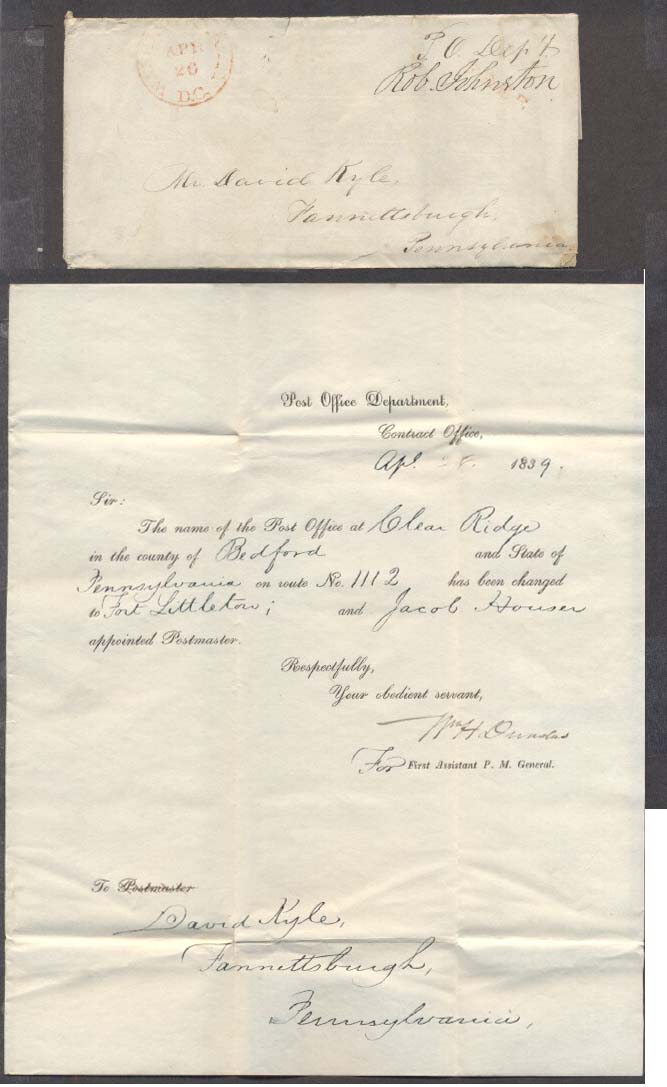 APR
26
D.C.
P. O. Dep't
Rob. Johnston
Mr. David Kyle,
Fannettsburgh,
Pennsylvania.
Post Office Department,
Contract Office,
Apl. 1839.
Sir:
The name of the Post Office at Clear Ridge
in the county of Bedford and State of
Pennsylvania on route No. 1112 has been changed
to Fort Littleton; and Jacob Houser
appointed Postmaster.
Respectfully,
Your obedient servant,
Wm H Dundas
For First Assistant P. M. General.
To Postmaster
David Kyle,
Fannettsburgh,
Pennsylvania,